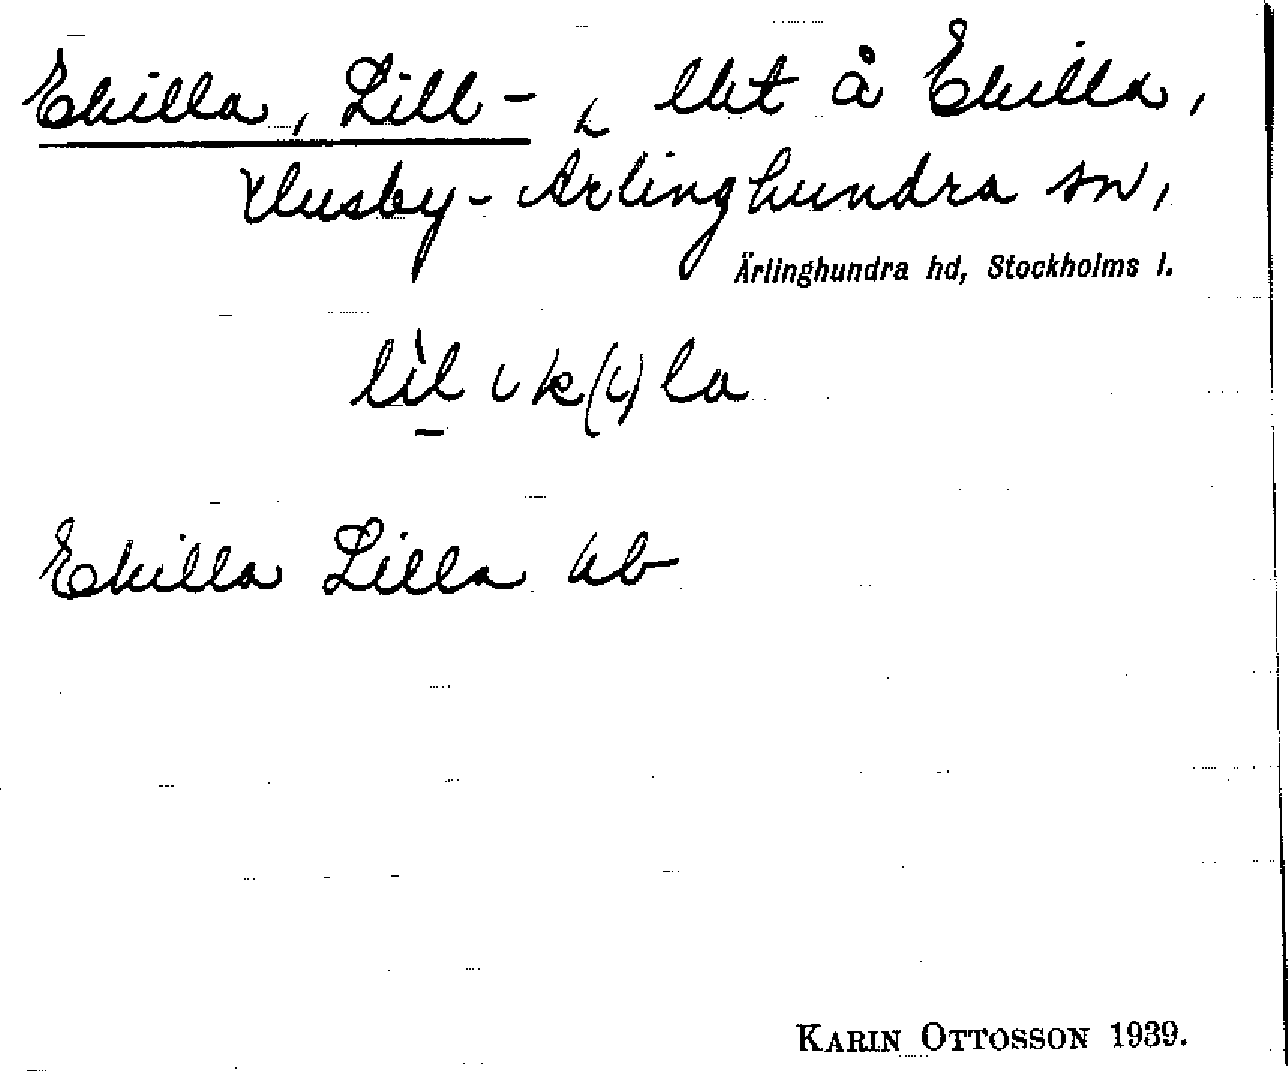 Ekilla, Lill-, lht å Ekilla,
Husby-Ärlinghundra sn,
Ärlinghundra hd, Stockholms l.
Ekilla Lilla ab
KARIN OTTOSSON 1939.